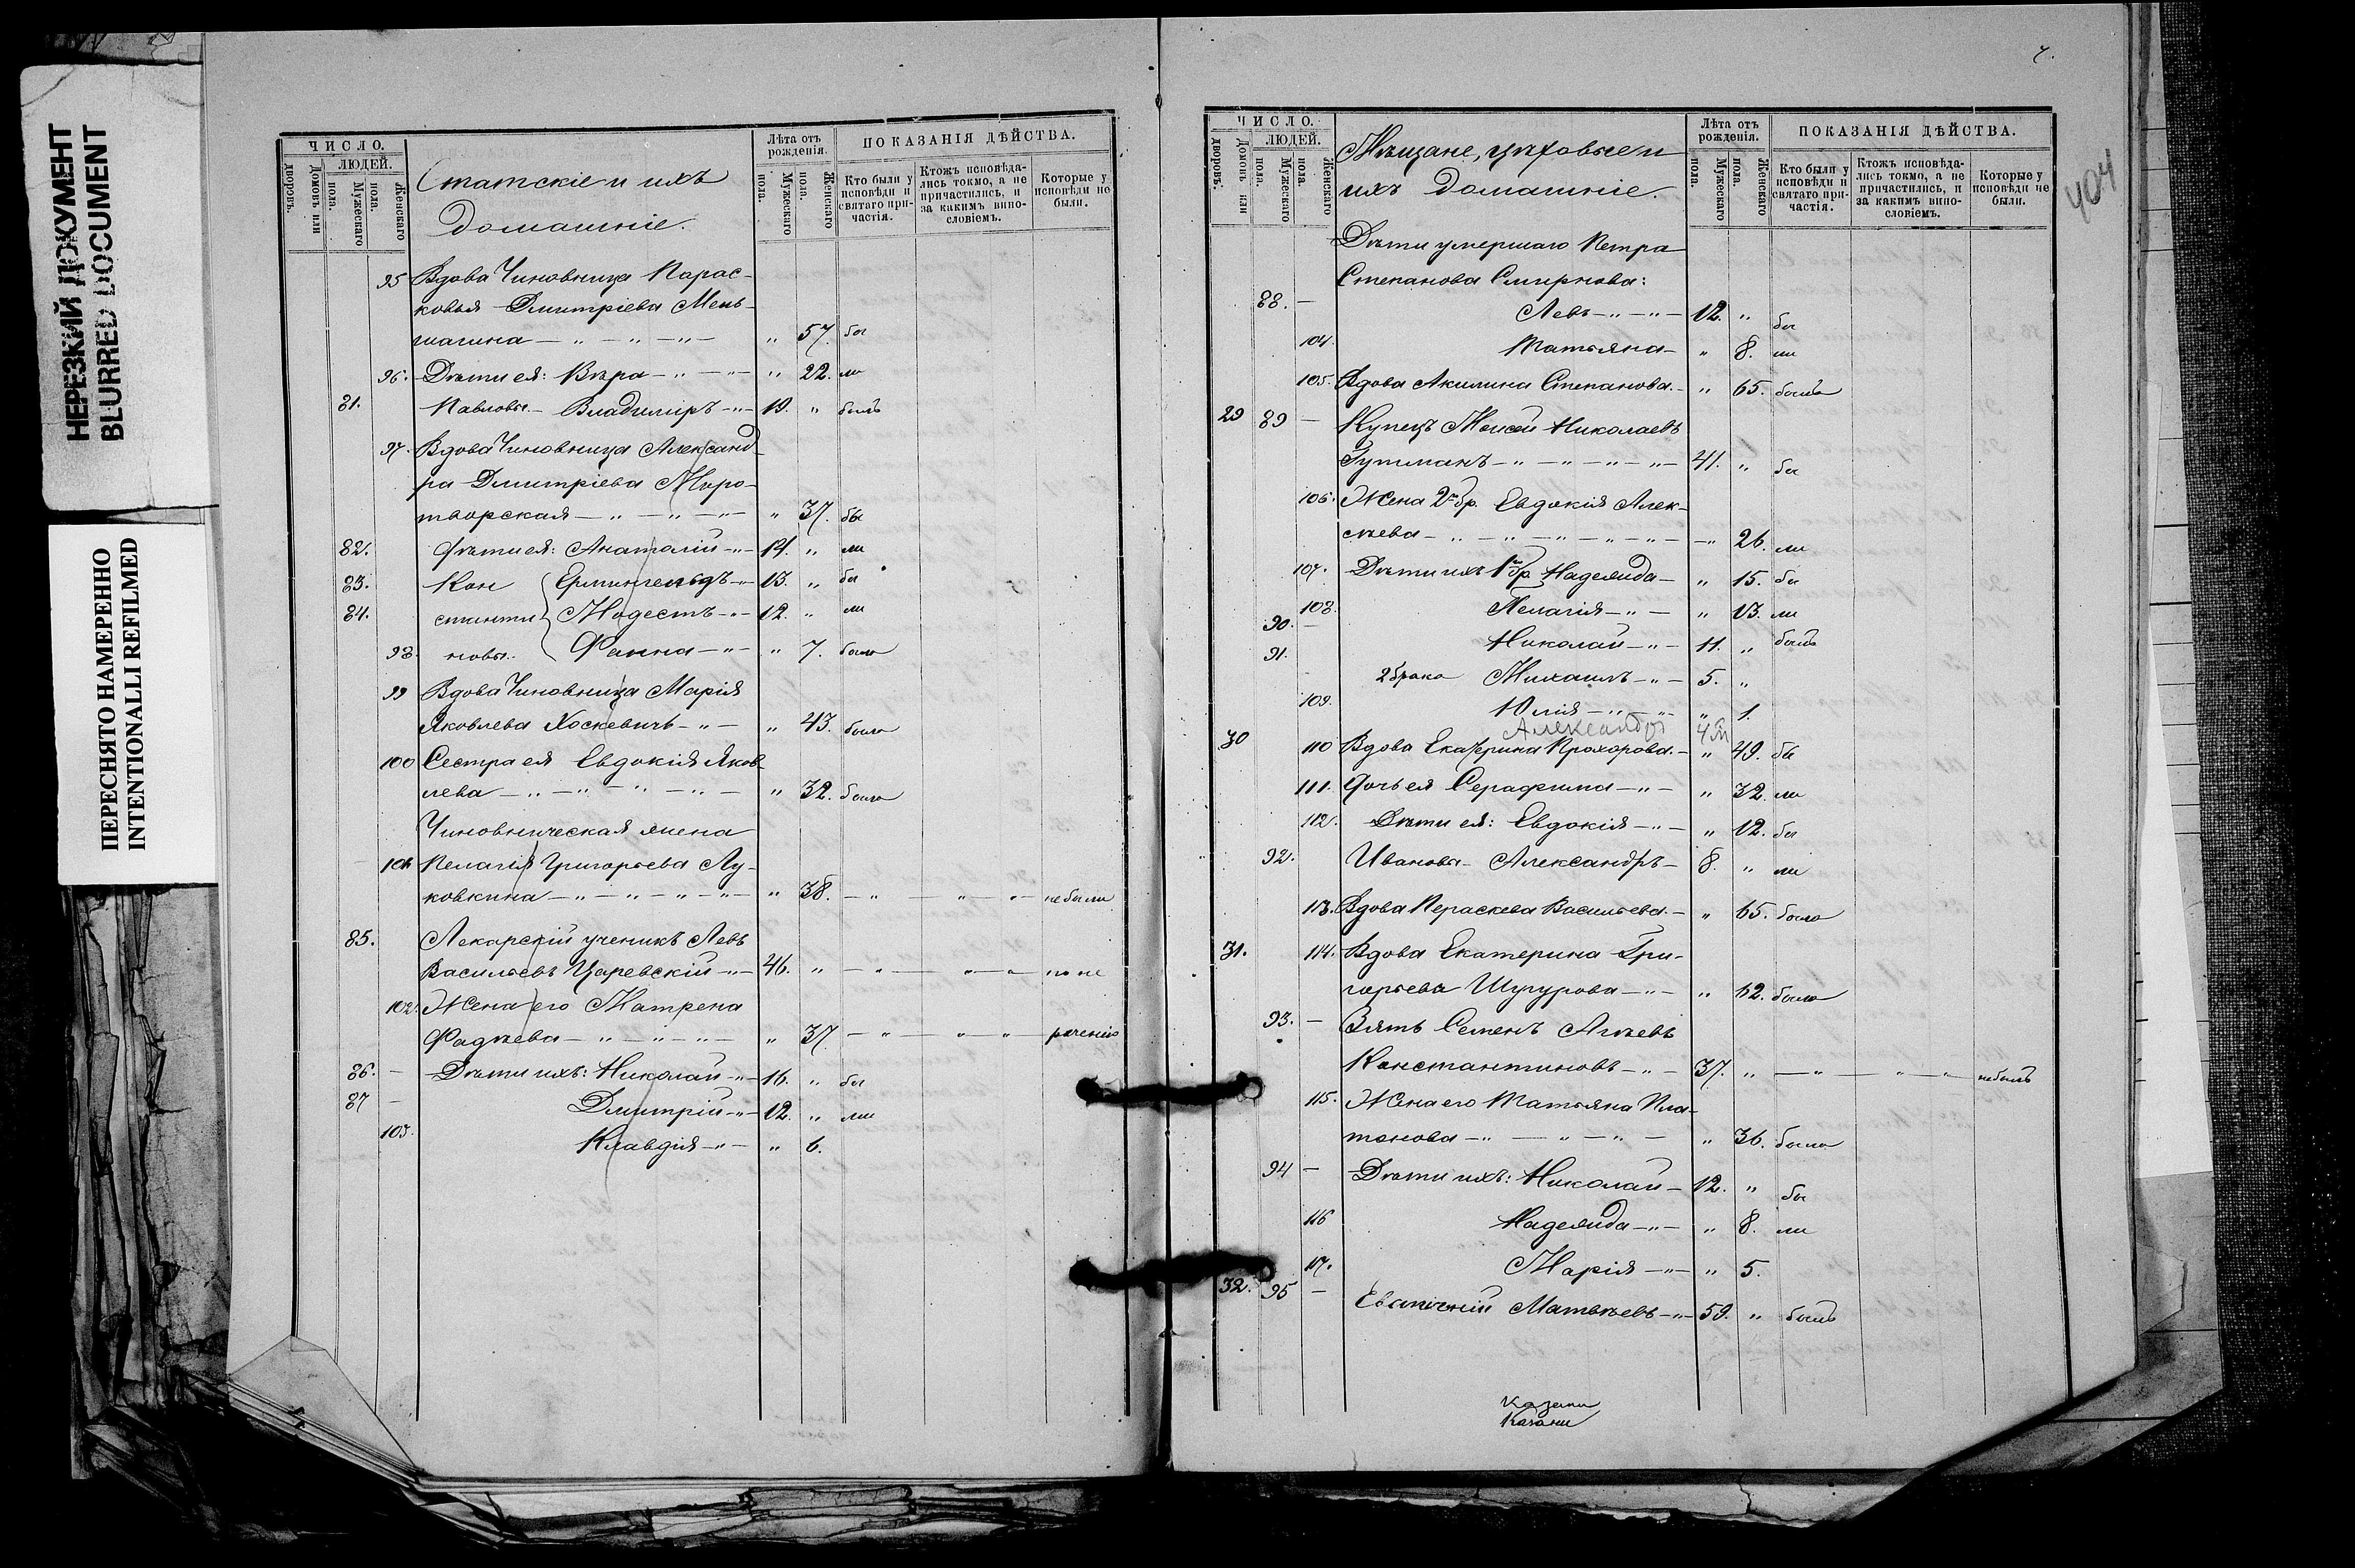 НЕРЕЗКИЙ ДОКУМЕНТ
BLURRED DOCUMENT
ПЕРЕСНЯТО НАМЕРЕННО
INTENTIONALLI REFILMED
ЧИСЛО.
ЛЮДЕЙ.
Домовъ или дворовъ.
Мужескаго пола.
Женскаго пола.
Статскіе и ихъ
домашніе.
Лѣта отъ рожденія.
Мужескаго пола.
Женскаго пола.
ПОКАЗАНІЯ ДѢЙСТВА.
Кто были у исповѣди и святаго причастія.
Ктожъ исповѣдались токмо, а не причастились, и за какимъ винословіемъ.
Которые у исповѣди не были.
95 Вдова Чиновница Парас-
ковья Дмитріева Мень-
шагина — " — " — " — " 57. бы
96. Дѣти ея: Вѣра — " — " — " 22. ли
81. Павловы — Владиміръ — " — 19. " былъ
97. Вдова Чиновница Александ-
ра Дмитріева Миро-
творская — " — " — " — " 37. бы
82. Дѣти ея: Анатолій — " — 14. " ли
83. Кон Ермингельдъ — " — 13. " бы
84. станти Модестъ — " — 12. " ли
98. новы. Фаина — " — " 7. была
99 Вдова Чиновница Марія
Яковлева Хоскевичъ — " — " 43. была
100 Сестра ея Евдокія Яков-
лева — " — " — " — " — " 32. была
Чиновническая жена
101 Пелагія Григорьева Лу-
ковкина — " — " — " — " — " 38. — " — " — " — не были
85. Лекарскій ученикъ Левъ
Васильевъ Царевскій — " — 46. " — " — " — " — по не
102. Жена его Матрена
Фадѣева — " — " — " — " 37 — " — " " — раченію
86. — Дѣти ихъ: Николай — " — 16. " бы
87 — Дмитрій — " — 12. " ли
103. Клавдія — " — " 6.
7.
404
ЧИСЛО.
ЛЮДЕЙ.
Домовъ или дворовъ.
Мужескаго пола.
Женскаго пола.
Мѣщане, цѣховые и
ихъ домашніе.
Лѣта отъ рожденія.
Мужескаго пола.
Женскаго пола.
ПОКАЗАНІЯ ДѢЙСТВА.
Кто были у исповѣди и святаго причастія.
Ктожъ исповѣдались токмо, а не причастились, и за какимъ винословіемъ.
Которые у исповѣди не были.
Дѣти умершаго Петра
Степанова Смирнова:
88. — Левъ — " — " — 12. " бы
104. Татьяна — " 8. ли
105. Вдова Акилина Степанова — " 65. была
29 89 — Купецъ Моисей Николаевъ
Гутманъ — " — " — " — " — 41. " бы
106. Жена 2 бр. Евдокія Алек-
сѣева — " — " — " — " — " — " 26. ли
107. Дѣти ихъ 1 бр. Надежда — " 15. бы
108. Пелагія — " — " 13. ли
90. — Николай — " — 11. " былъ
91. — 2 брака Михаилъ — " — 5. "
109. Юлія — " — " — " 1.
Александр 4 м
30 110 Вдова Екатерина Прохорова — " 49. бы
111. Дочь ея Серафима — " — " 32. ли
112. Дѣти ея: Евдокія — " — " 12. бы
92. Ивановы — Александръ — 8. " ли
113. Вдова Параскева Васильева — " 65. была
31. 114. Вдова Екатерина Гри-
горьева Шугурова — " — " 62. была
93. — Зять Семенъ Агѣевъ
Константиновъ — " — 37. " — " — " — " — не былъ
115. Жена его Татьяна Пла-
тонова — " — " — " — " 36. была
94 — Дѣти ихъ: Николай — 12. " бы
116 Надежда — " — " 8. ли
117. Марія — " — " 5.
32. 95 — Матвѣевъ — " — 59. " былъ
Казани
Казани